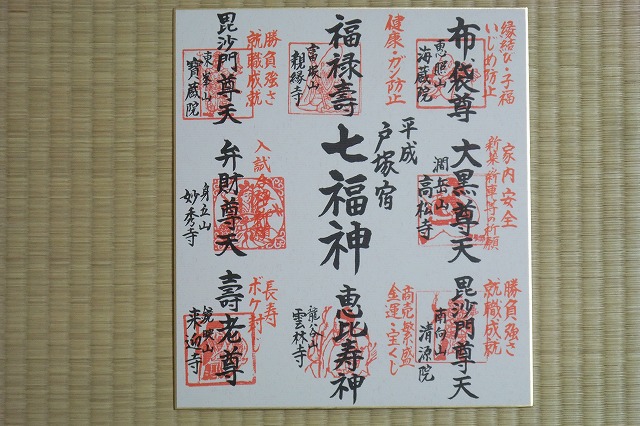 縁結び・子福
いじめ防止
布袋尊
恵照山
海蔵院
健康・ガン防止
福禄壽
富塚山
親縁寺
勝負強さ
就職成就
毘沙門尊天
東峯山
寶蔵院
家内安全
新築・新車等の祈願
大黒尊天
潤岳山
高松寺
平成
戸塚宿
七福神
入試合格祈願
弁財尊天
身立山
妙秀寺
勝負強さ
就職成就
毘沙門尊天
南向山
清源院
商売繁盛
金運・宝くじ
恵比寿神
龍谷山
雲林寺
長寿
ボケ封じ
壽老尊
鏡照山
来迎寺